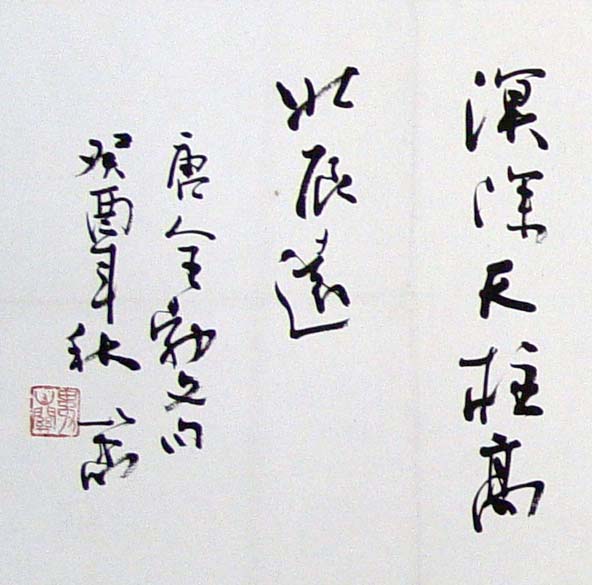 溟深天柱高
北辰遠
唐王勃文句
癸酉年秋